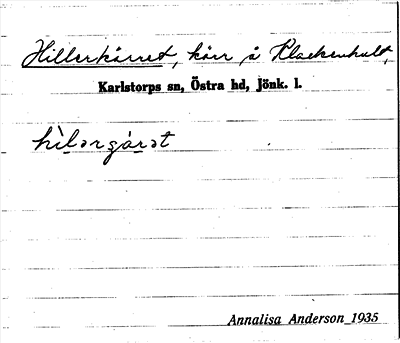 Hillerkärret, kärr å Klackenhult,
Karlstorps sn, Östra hd, Jönk. l.
hìlərgárət
Annalisa Anderson 1935